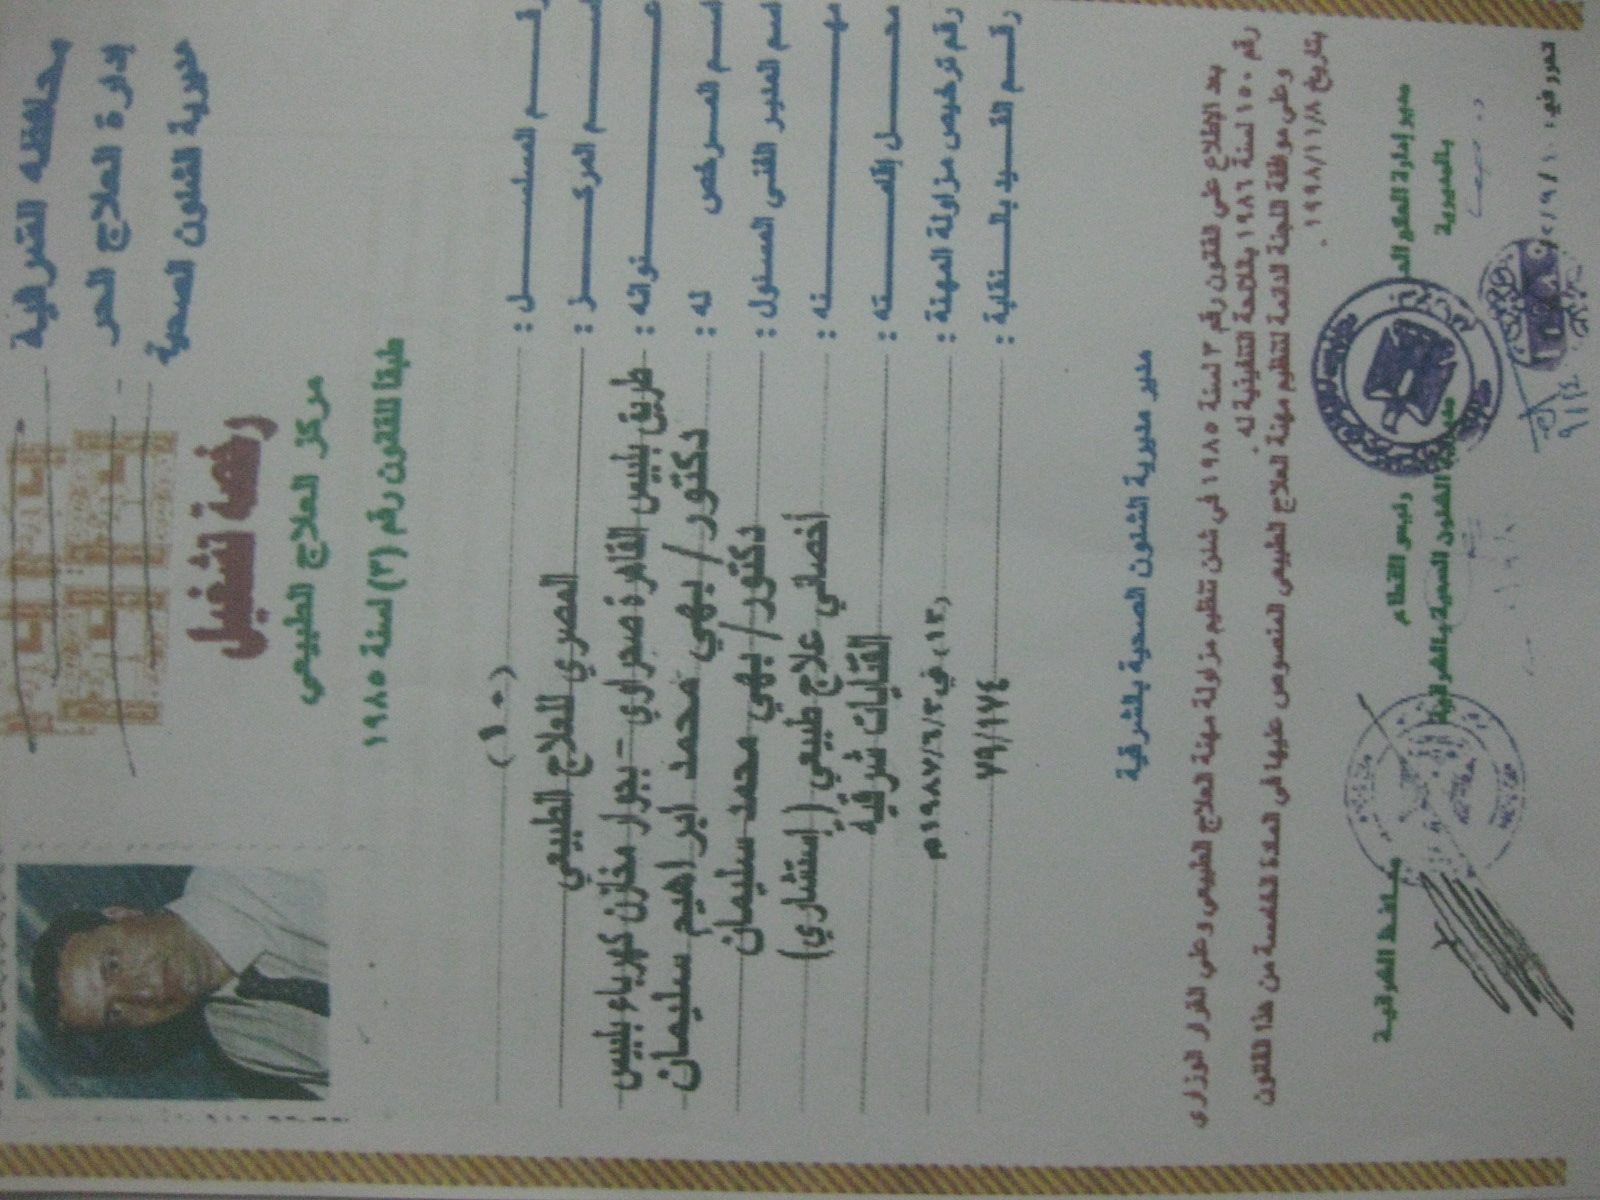 محافظه الشرقية
إدارة العلاج الحر
مديرية الشئون الصحية
رخصة تشغيل
مركز العلاج الطبيعي
طبقا للقانون رقم (٣) لسنة ١٩٨٥
رقم المسلسل : (١٠)
اسم المركز : المصري للعلاج الطبيعي
عنوانه : طريق بلبيس القاهرة صحراوي - بجوار مخازن كهرباء بلبيس
اسم المرخص له : دكتور/ بهي محمد ابراهيم سليمان
اسم المدير الفني المسئول : دكتور/ بهي محمد سليمان
مهنته : أخصائي علاج طبيعي (إستشاري)
محل إقامته : القنايات شرقية
رقم ترخيص مزاولة المهنة : ١٣٠، في ١٩٨٧/٦/٣م
رقم القيد بالنقابة : ٧٩/١٧٤
مدير مديرية الشئون الصحية بالشرقية
بعد الإطلاع على القانون رقم ٣ لسنة ١٩٨٥ في شئن تنظيم مزاولة مهنة العلاج الطبيعي وعلى القرار الوزارى
رقم ١٥٠ لسنة ١٩٨٦ بالائحة التنفيذية له.
وعلى موافقة اللجنة الدائمة لتنظيم مهنة العلاج الطبيعى المنصوص عليها فى المادة الخامسة من هذا القانون
بتاريخ ١٩٩٨/١١/٨ .
مدير إدارة العلاج الحر
بالمديرية
رئيس القطاع
الشئون الصحية بالشرقية
محافظ الشرقية
تحرر في :